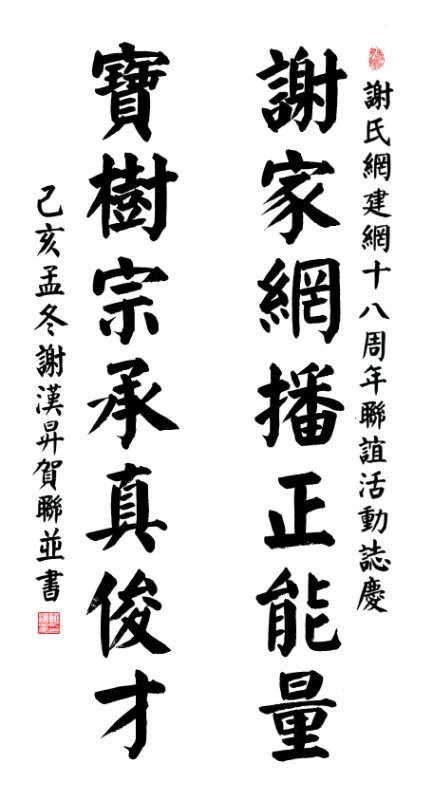 謝氏網建網十八周年聯誼活動誌慶
謝家網播正能量
寶樹宗承真俊才
己亥孟冬謝漢昇賀聯並書